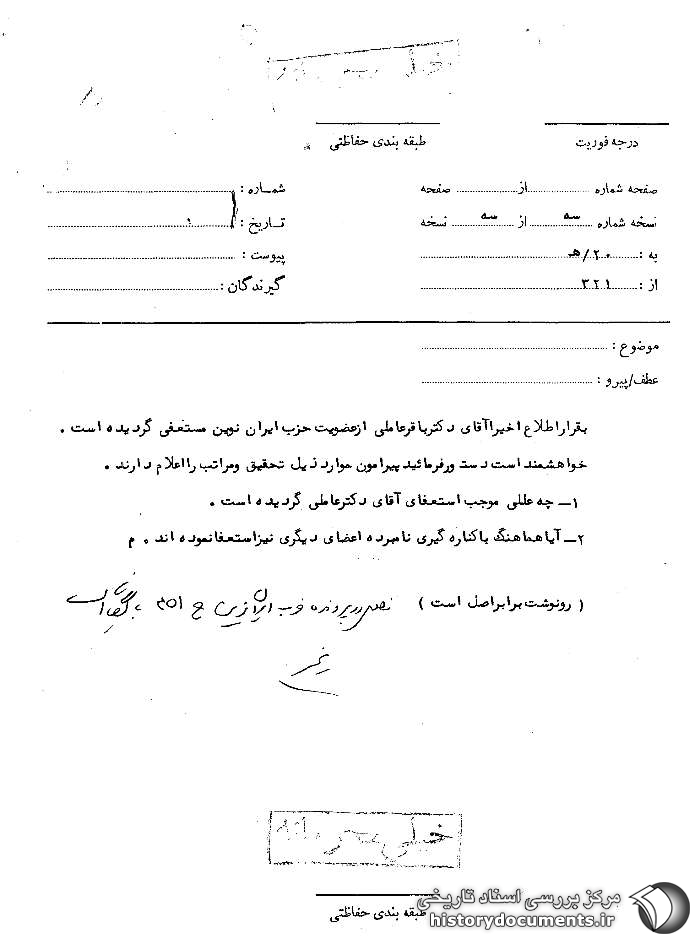 خیلی محرمانه
درجه فوریت
طبقه بندی حفاظتی
صفحه شماره ............ از ............ صفحه
شماره :
نسخه شماره سه از سه نسخه
تاریخ :
به : ۲۰/هـ
پیوست :
از : ۳۲۱
گیرندگان :
موضوع :
عطف/پیرو :
بقرار اطلاع اخیرا آقای دکتر باقر عاملی از عضویت حزب ایران نوین مستعفی گردیده است .
خواهشمند است دستور فرمائید پیرامون موارد ذیل تحقیق و مراتب را اعلام دارند .
۱ــ چه عللی موجب استعفای آقای دکتر عاملی گردیده است .
۲ــ آیا هماهنگ با کناره گیری نامبرده اعضای دیگری نیز استعفا نموده اند . م
( رونوشت برابر اصل است ) اصل در پرونده حزب ایران نوین
خیلی محرمانه
طبقه بندی حفاظتی
مرکز بررسی اسناد تاریخی
historydocuments.ir